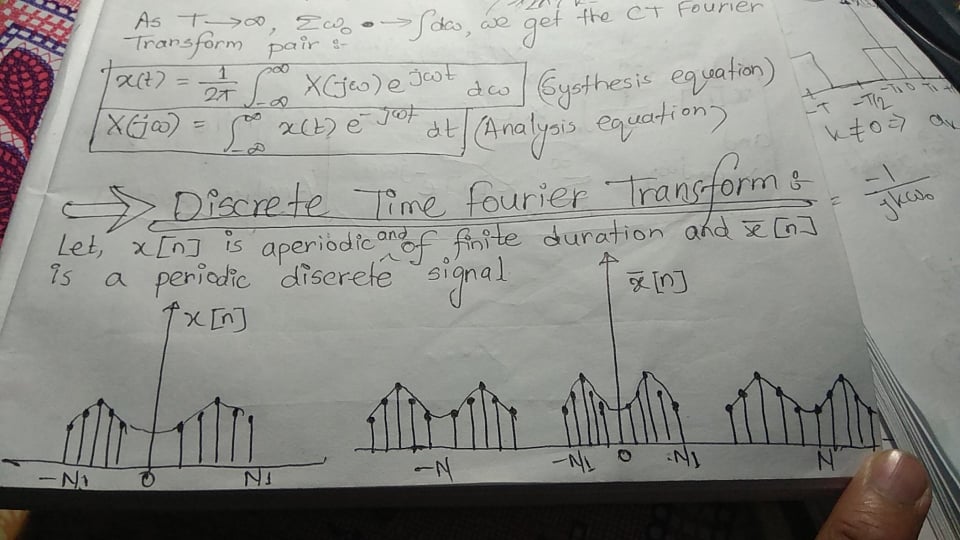 As T→∞, Σω₀ •→∫dω, we get the CT Fourier
Transform pair :-
x(t) = 1/2π ∫_{-∞}^{∞} X(jω) e^{jωt} dω (Systhesis equation)
X(jω) = ∫_{-∞}^{∞} x(t) e^{-jωt} dt (Analysis equation)
⇒ Discrete Time Fourier Transform :-
Let, x[n] is aperiodic and of finite duration and x̄[n]
is a periodic discrete signal
x[n]
x̄[n]
-N₁ 0 N₁
-N -N₁ 0 N₁ N
-π -π/2
k≠0 ⇒
= -1/jkω₀